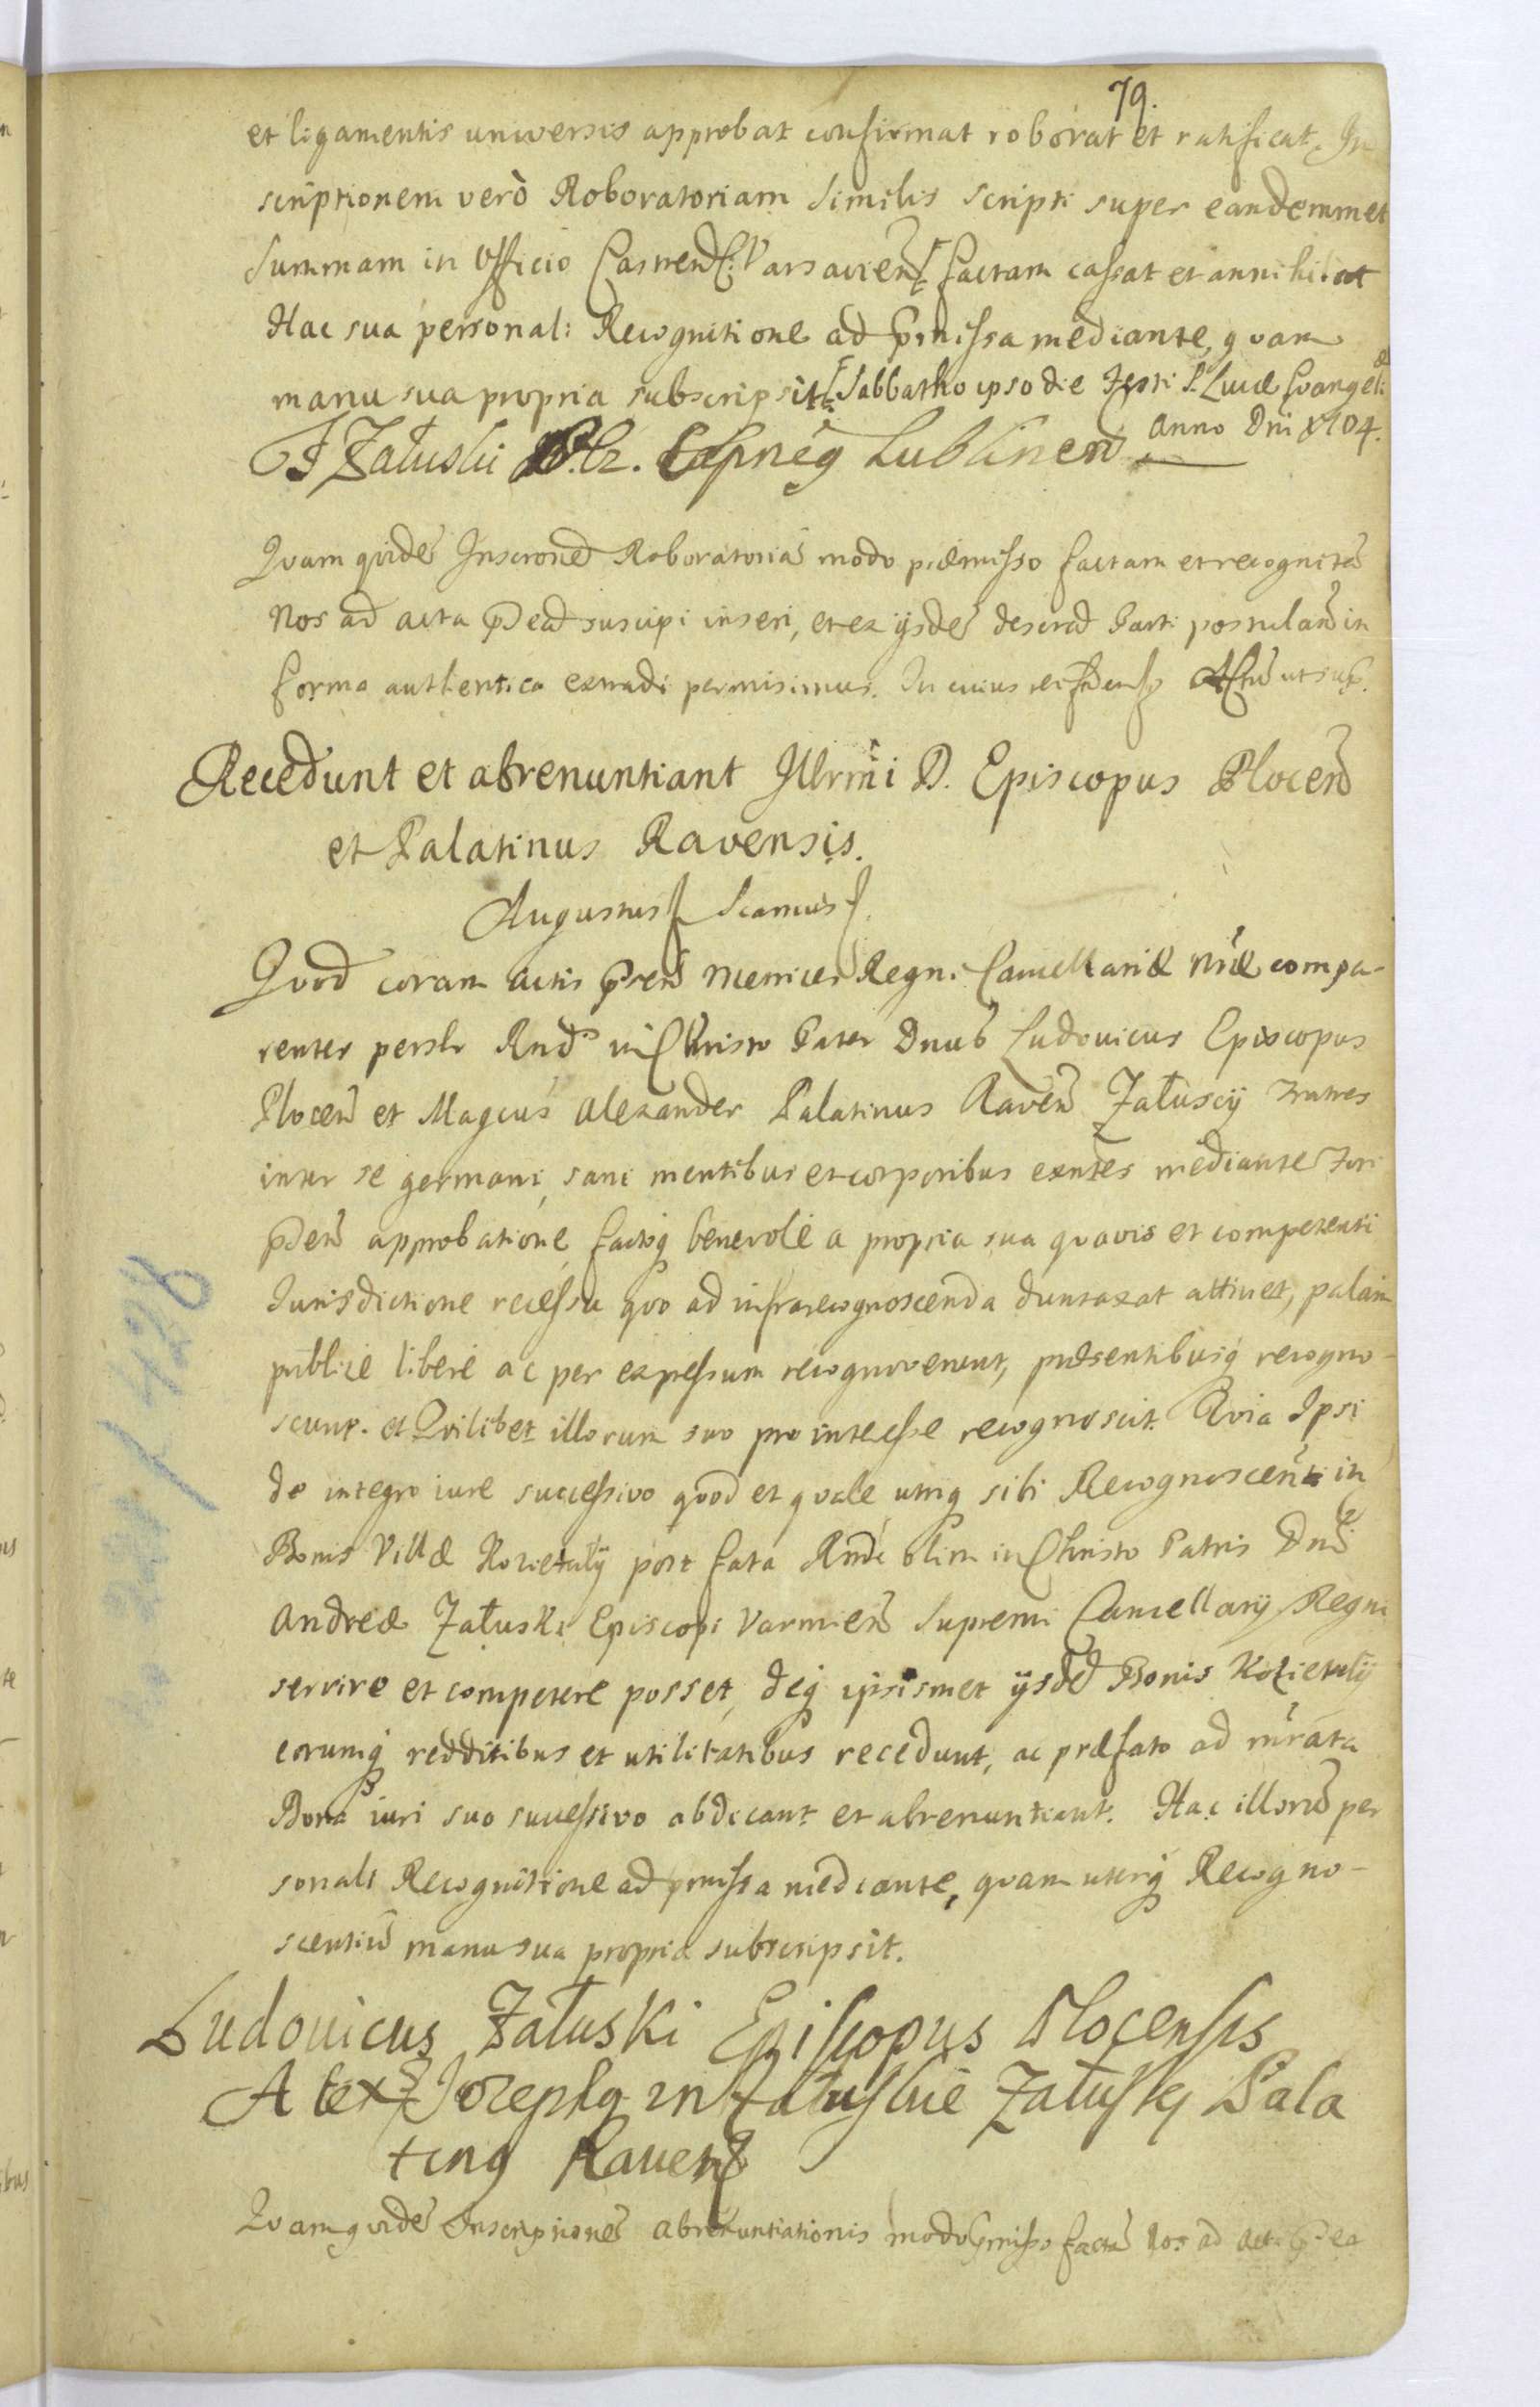 79.
et ligamentis universis approbat confirmat roborat et ratificat. In
scriptionem verò Roboratoriam similis scripti super eandemmet
summam in Officio Castren Varsavien factam cassat et annihilat
Hac sua personali Recognitione ad pmissa mediante, quam
manu sua propria subscripsit Sabbatho ipso die Festi S. Lucæ Evangeli
Anno Dni 1704.
Załuski Lublinen
Quam quidē Inscronē Roboratoriā modo præmisso factam et recognitā
Nos ad acta pd ead suscipi inseri, et ex ijsdē descrad Parti postulan in
forma authentica extradi permisimus. In cuius rei fidem ut sup.
Recedunt et abrenuntiant Illrmi D. Episcopus Plocen
et Palatinus Ravensis.
Augustus Scdus
Quod coram actis pnten Metrices Regni Cancellariæ nræ compa-
rentes persłr Rnds in Christo Pater Dnus Ludovicus Episcopus
Plocen et Magcus Alexander Palatinus Raven Załuscÿ Fratres
inter se germani, sani mentibus et corporibus exntes mediante Fori
pnten approbatione, factoq benevolè a propria sua quavis et competenti
Iurisdictione recessu quo ad infrarecognoscenda duntaxat attinet, palam
publicè liberè ac per expressum recognoverunt, præsentibusq recogno-
scunt. et Quilibet illorum suo pro interesse recognoscit. Quia Ipsi
de integro iure successivo quod et quale utriq sibi Recognoscenti in
Bonis Villæ Kozietuły post fata Rndi olim in Christo Patris Dni
Andreæ Załuski Episcopi Varmien Supremi Cancellarÿ Regni
servire et competere posset, deq ipsismet ÿsdē Bonis Kozietuły
eorumq redditibus et utilitatibus recedunt, ac præfato ad mrata
Bona iuri suo successivo abdicant et abrenuntiant. Hac illorū per
sonali Recognitione ad pmissa mediante, quam uterq Recogno-
scentiū manu sua propria subscripsit.
Ludouicus Załuski Episcopus Plocensis
Alex Joseph in Załuskie Załusky Pala
tinq Rauen
Quam quidē Inscriptionē abrenuntiationis modo pmisso factā Nos ad acta pd ea